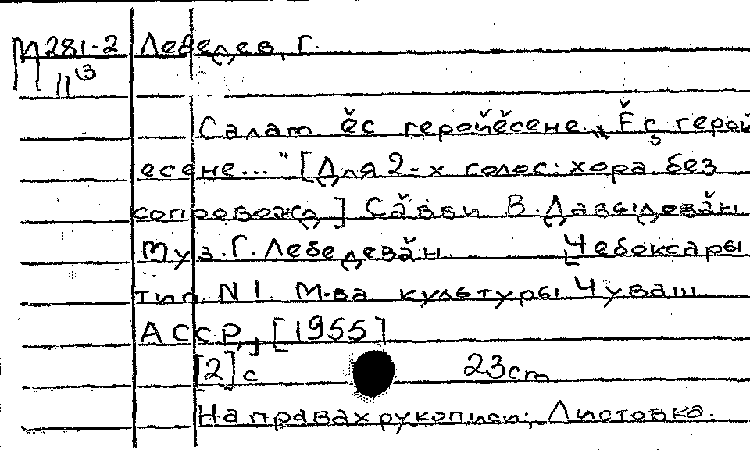 М281-2 Лебедев, Г.
11/3
Салам ĕс геройĕсене. "Ĕç герой
есене..." [Для 2-х голос. хора без
сопровожд.] Сăвви В. Давыдовăн
Муз. Г. Лебедевăн. Чебоксары
тип. N 1. М-ва культуры Чуваш
АССР, [1955]
[2] с 23cm
На правах рукописи; Листовка.